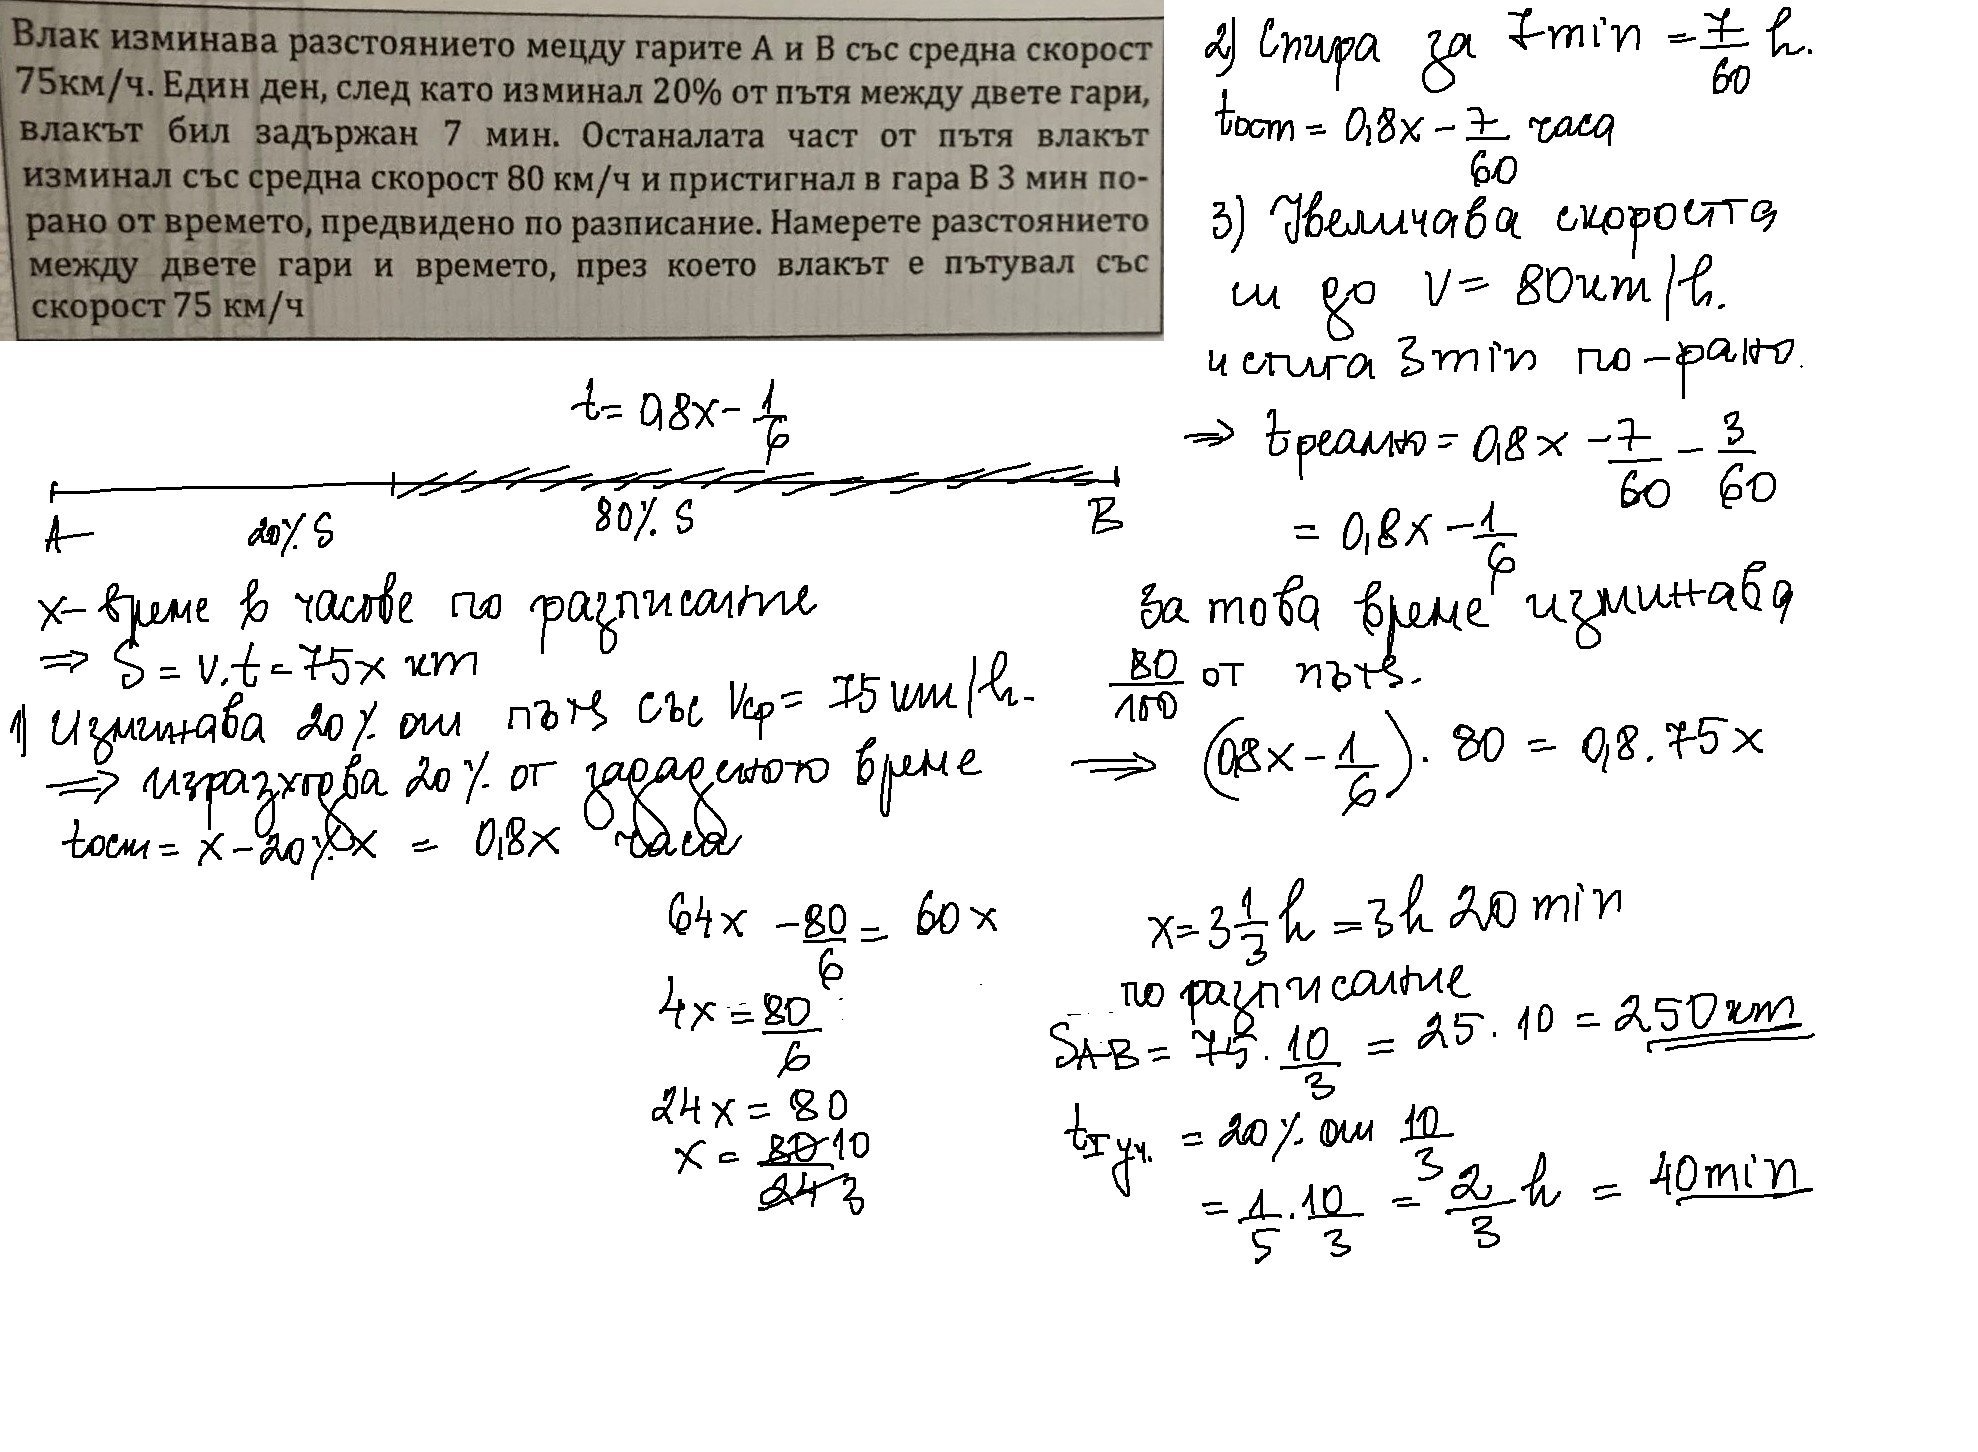 Влак изминава разстоянието мецду гарите А и В със средна скорост
75км/ч. Един ден, след като изминал 20% от пътя между двете гари,
влакът бил задържан 7 мин. Останалата част от пътя влакът
изминал със средна скорост 80 км/ч и пристигнал в гара В 3 мин по-
рано от времето, предвидено по разписание. Намерете разстоянието
между двете гари и времето, през което влакът е пътувал със
скорост 75 км/ч
t = 0,8x - 1/6
A 20% S 80% S B
x - време в часове по разписание
⇒ S = v.t = 75x km
1) Изминава 20% от пътя със Vср = 75 km/h.
⇒ изразходва 20% от зададеното време
tост = x - 20% x = 0,8x часа
2) Спира за 7 min = 7/60 h.
tост = 0,8x - 7/60 часа
3) Увеличава скоростта
си до V = 80 km/h.
и стига 3 min по-рано.
⇒ tреално = 0,8x - 7/60 - 3/60
= 0,8x - 1/6
За това време изминава
80/100 от пътя.
⇒ (0,8x - 1/6) . 80 = 0,8 . 75x
64x - 80/6 = 60x
4x = 80/6
24x = 80
x = 80 10/24 3
x = 3 1/3 h = 3h 20 min
по разписание
SAB = 75 . 10/3 = 25 . 10 = 250 km
tI уч. = 20% от 10/3
= 1/5 . 10/3 = 2/3 h = 40 min